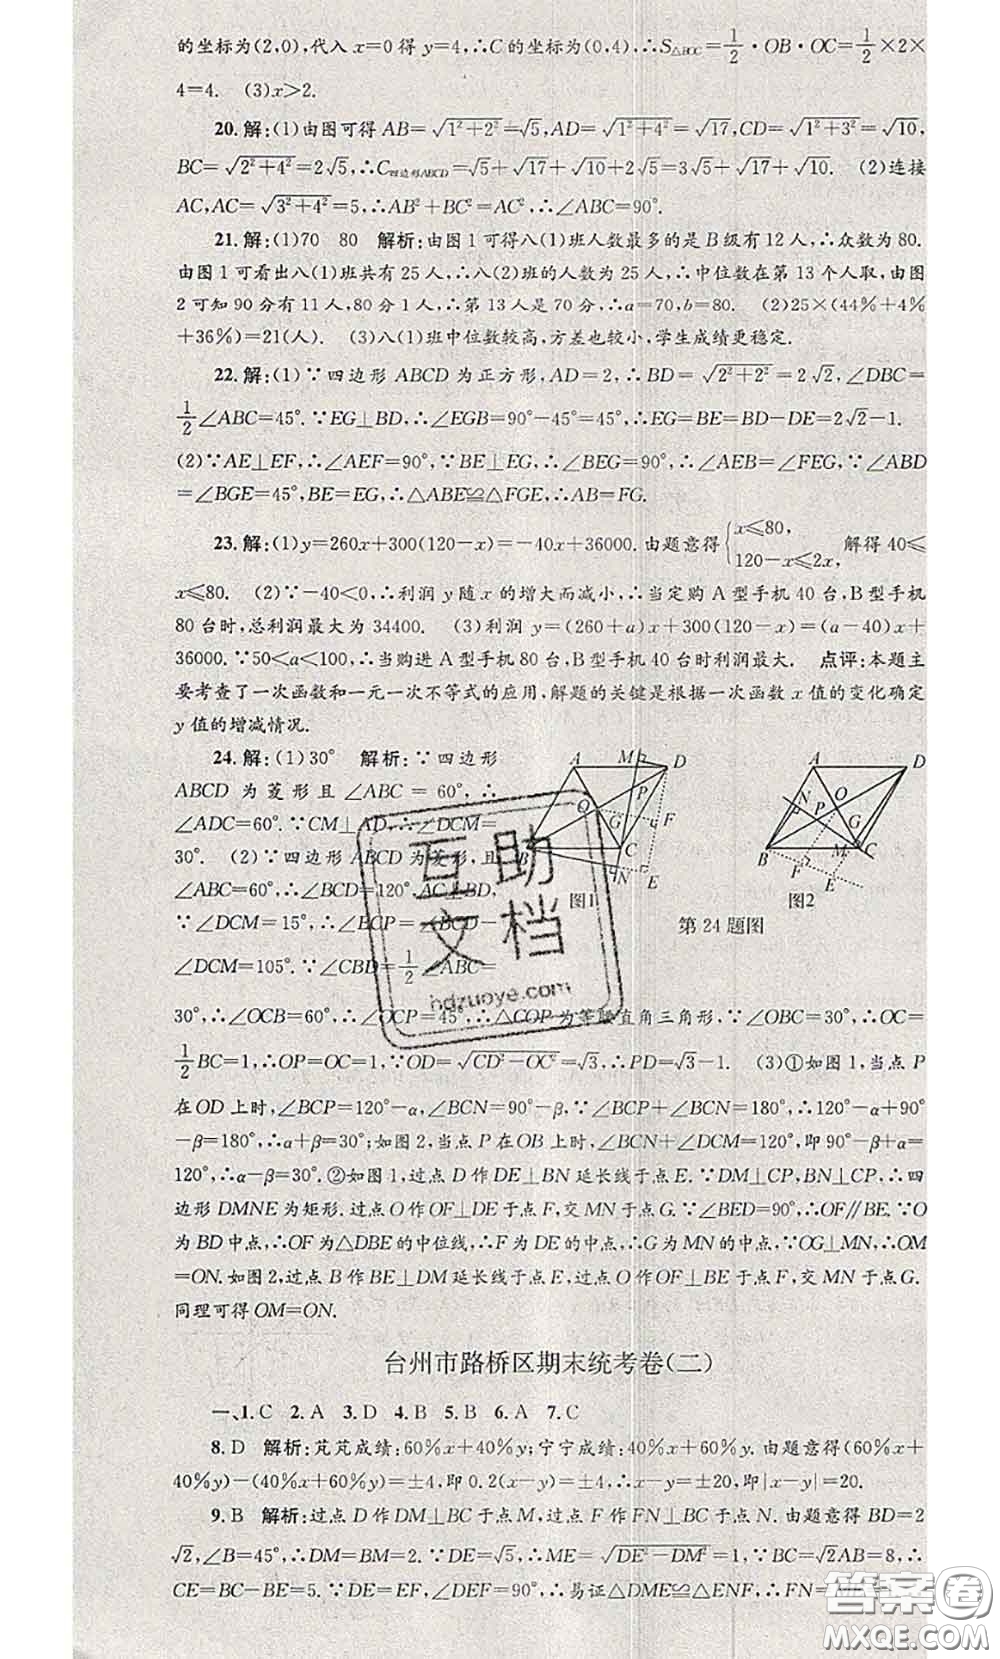 的坐标为(2,0),代入x=0得y=4,∴C的坐标为(0,4),∴S△BOC=1/2·OB·OC=1/2×2×
4=4. (3)x>2.
20.解:(1)由图可得AB=√(1²+2²)=√5,AD=√(1²+4²)=√17,CD=√(1²+3²)=√10,
BC=√(2²+4²)=2√5,∴C四边形ABCD=√5+√17+√10+2√5=3√5+√17+√10. (2)连接
AC,AC=√(3²+4²)=5,∴AB²+BC²=AC²,∴∠ABC=90°.
21.解:(1)70 80 解析:由图1可得八(1)班人数最多的是B级有12人,∴众数为80.
由图1可看出八(1)班共有25人,∴八(2)班的人数为25人,∴中位数在第13个人取,由图
2可知90分有11人,80分1人,∴第13人是70分,∴a=70,b=80. (2)25×(44%+4%
+36%)=21(人). (3)八(1)班中位数较高,方差也较小,学生成绩更稳定.
22.解:(1)∵四边形ABCD为正方形,AD=2,∴BD=√(2²+2²)=2√2,∠DBC=
1/2∠ABC=45°.∵EG⊥BD,∴∠EGB=90°-45°=45°,∴EG=BE=BD-DE=2√2-1.
(2)∵AE⊥EF,∴∠AEF=90°,∵BE⊥EG,∴∠BEG=90°,∴∠AEB=∠FEG,∵∠ABD
=∠BGE=45°,BE=EG,∴△ABE≌△FGE,∴AB=FG.
23.解:(1)y=260x+300(120-x)=-40x+36000.由题意得{x≤80, 120-x≤2x, 解得40≤
x≤80. (2)∵-40<0,∴利润y随x的增大而减小,∴当定购A型手机40台,B型手机
80台时,总利润最大为34400. (3)利润y=(260+a)x+300(120-x)=(a-40)x+
36000.∵50<a<100,∴当购进A型手机80台,B型手机40台时利润最大. 点评:本题主
要考查了一次函数和一元一次不等式的应用,解题的关键是根据一次函数x值的变化确定
y值的增减情况.
24.解:(1)30° 解析:∵四边形
ABCD为菱形且∠ABC=60°,∴
∠ADC=60°.∵CM⊥AD,∴∠DCM=
30°. (2)∵四边形ABCD为菱形,且
∠ABC=60°,∴∠BCD=120°,AC⊥BD,
∵∠DCM=15°,∴∠BCP=∠BCD-
∠DCM=105°.∵∠CBD=1/2∠ABC=
A M D P Q G F B C N E 图1
A D O N P G B F M C E 图2
第24题图
30°,∴∠OCB=60°,∴∠OCP=45°,∴△COP为等腰直角三角形,∵∠OBC=30°,∴OC=
1/2BC=1,∴OP=OC=1,∵OD=√(CD²-OC²)=√3,∴PD=√3-1. (3)①如图1,当点P
在OD上时,∠BCP=120°-α,∠BCN=90°-β,∵∠BCP+∠BCN=180°,∴120°-α+90°
-β=180°,∴α+β=30°;如图2,当点P在OB上时,∠BCN+∠DCM=120°,即90°-β+α=
120°,∴α-β=30°.②如图1,过点D作DE⊥BN延长线于点E.∵DM⊥CP,BN⊥CP,∴四
边形DMNE为矩形.过点O作OF⊥DE于点F,交MN于点G.∵∠BED=90°,∴OF∥BE.∵O
为BD中点,∴OF为△DBE的中位线,∴F为DE的中点,∴G为MN的中点,∵OG⊥MN,∴OM
=ON.如图2,过点B作BE⊥DM延长线于点E,过点O作OF⊥BE于点F,交MN于点G.
同理可得OM=ON.
台州市路桥区期末统考卷(二)
一、1.C 2.A 3.D 4.B 5.B 6.A 7.C
8.D 解析:芃芃成绩:60%x+40%y;宁宁成绩:40%x+60%y.由题意得(60%x+
40%y)-(40%x+60%y)=±4,即0.2(x-y)=±4,∴x-y=±20,即|x-y|=20.
9.B 解析:过点D作DM⊥BC于点M,过点F作FN⊥BC于点N.由题意得BD=2
√2,∠B=45°,∴DM=BM=2.∵DE=√5,∴ME=√(DE²-DM²)=1,∵BC=√2AB=8,∴
CE=BC-BE=5.∵DE=EF,∠DEF=90°,∴易证△DME≌△ENF,∴FN=ME=1,
互助
文档
hdzuoye.com
答案圈
MXQE.COM